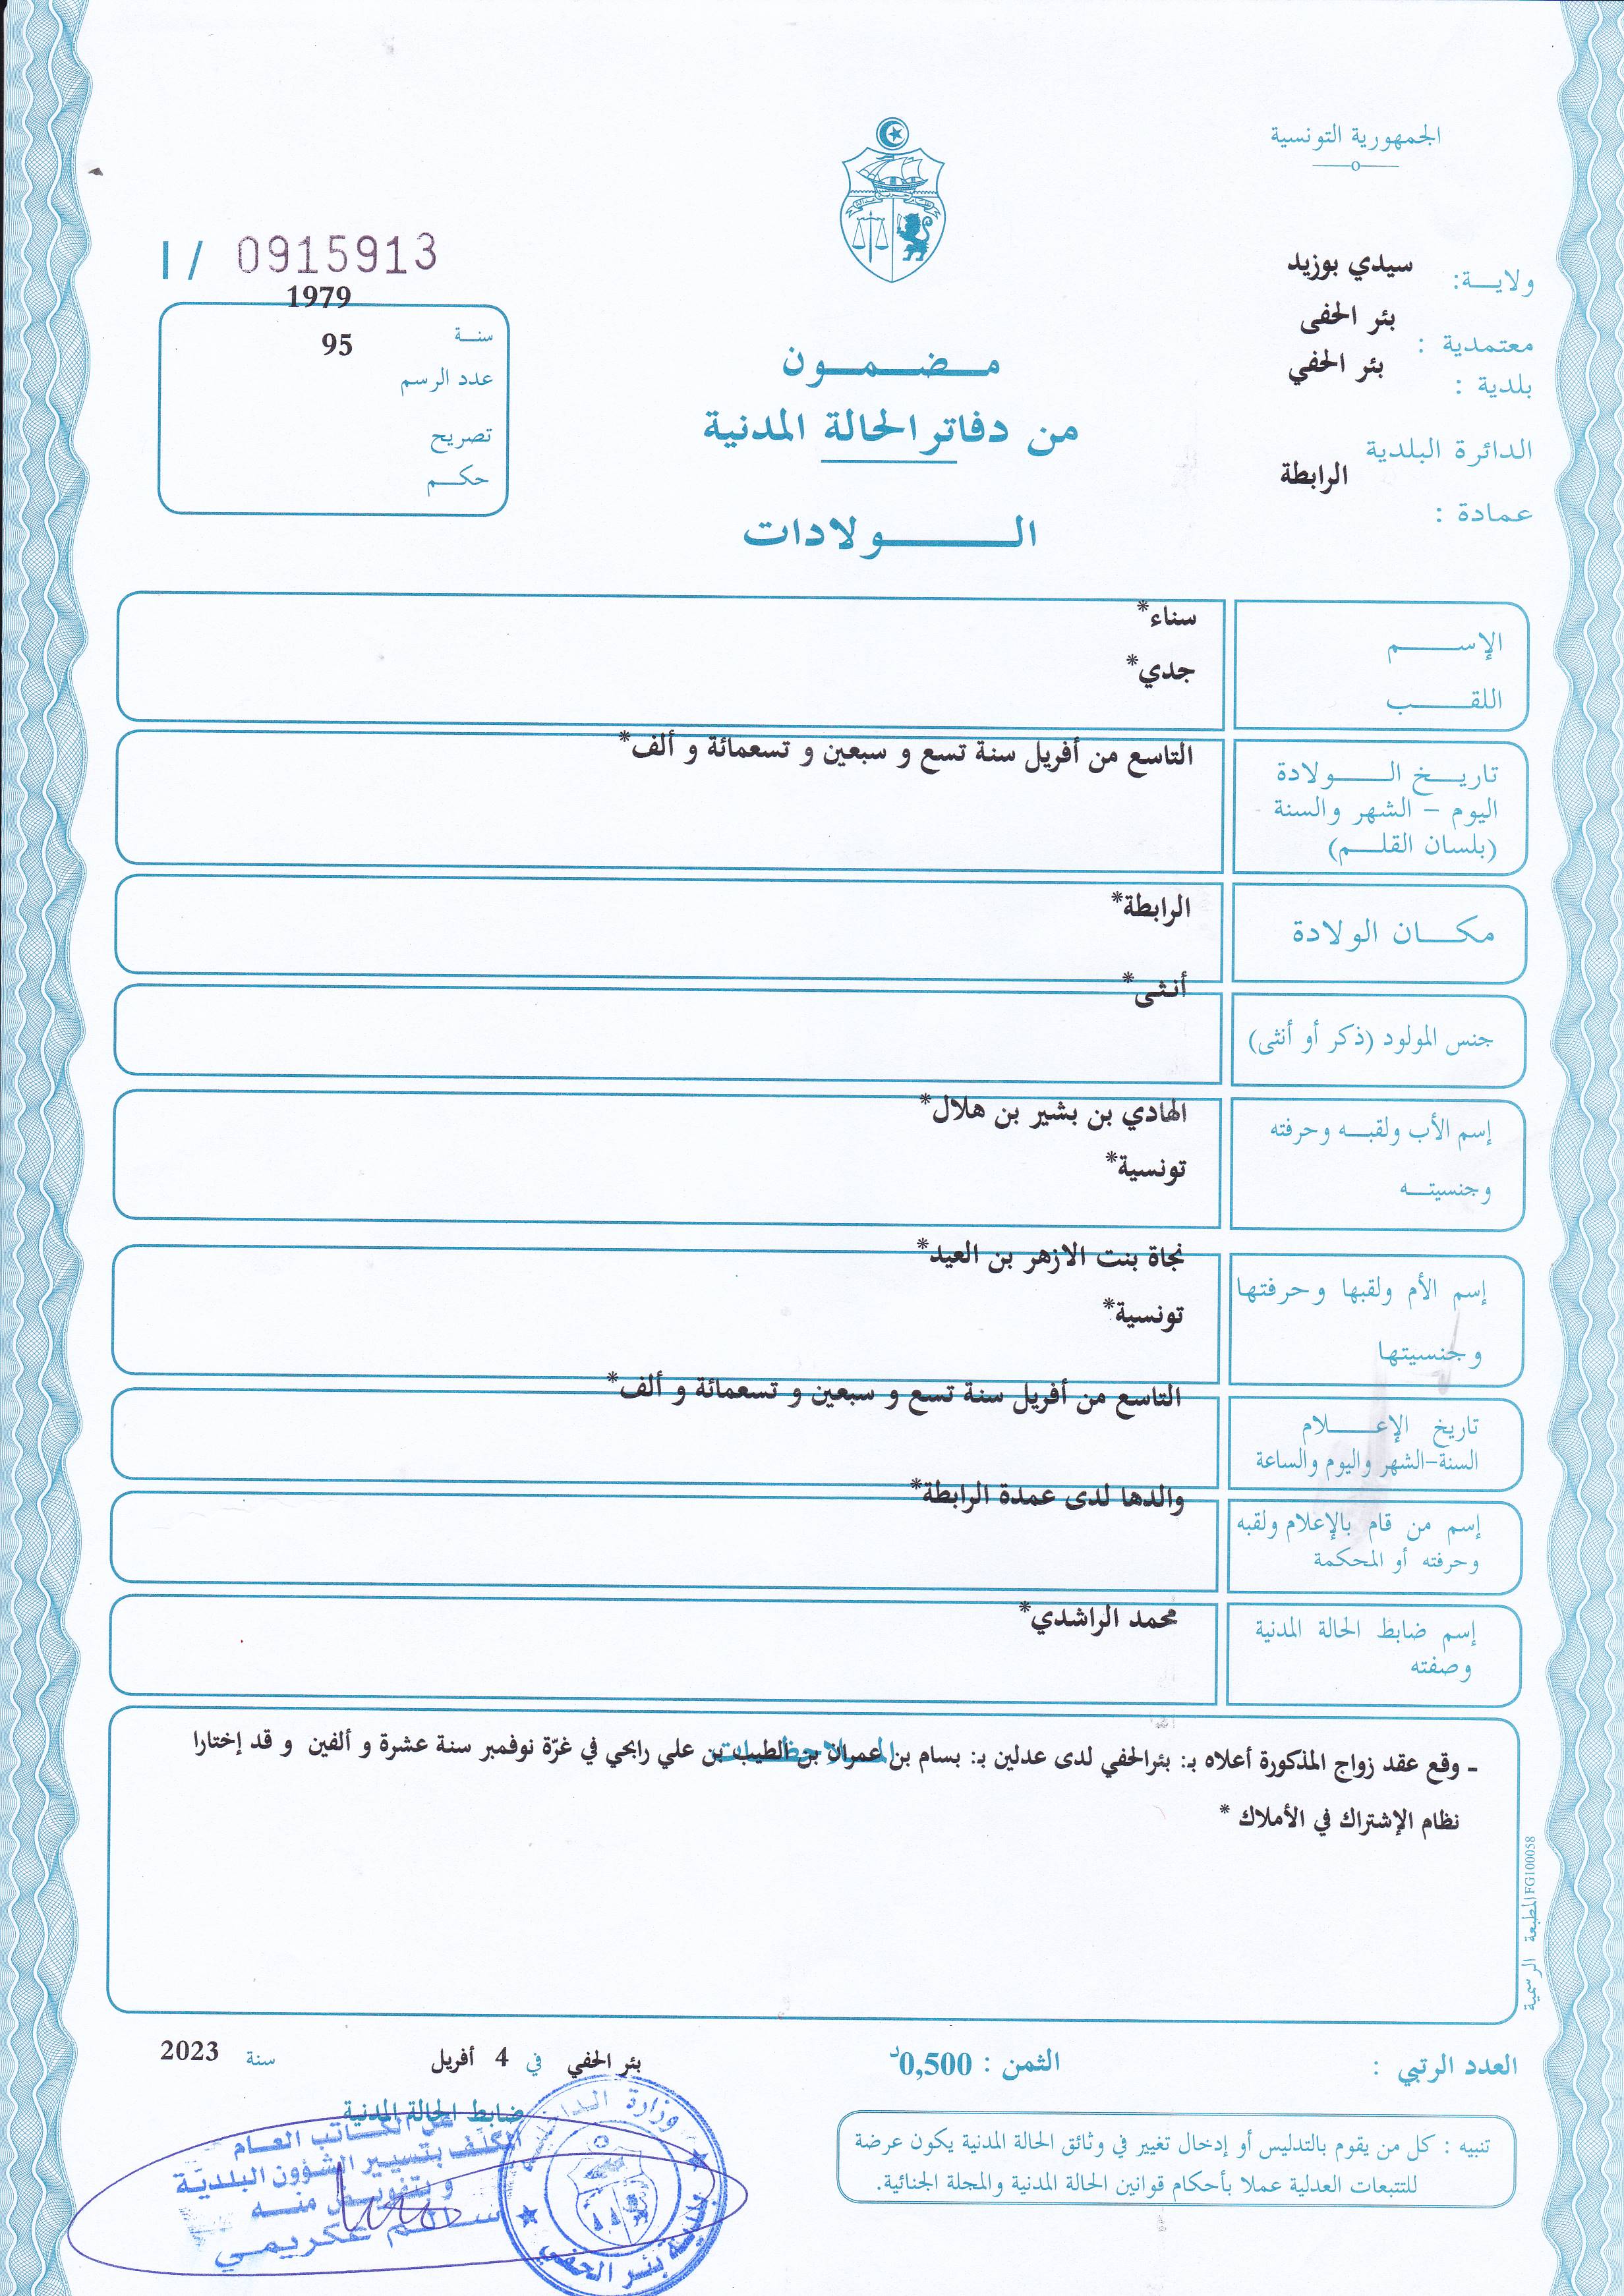 الجمهورية التونسية
ولايـــة: سيدي بوزيد
معتمدية : بئر الحفى
بلدية : بئر الحفي
الدائرة البلدية
الرابطة
عمادة :
I / 0915913
1979
سنــة
95
عدد الرسم
تصريح
حكــم
مـــضـــمـــون
من دفاتر الحالة المدنية
الـــــــولادات
الإســــــم سناء*
اللقــــــب جدي*
تاريــخ الـــــولادة التاسع من أفريل سنة تسع و سبعين و تسعمائة و ألف*
اليوم – الشهر والسنة
(بلسان القلــم)
مكـــان الولادة الرابطة*
جنس المولود (ذكر أو أنثى) أنثى*
إسم الأب ولقبــه وحرفته الهادي بن بشير بن هلال*
وجنسيتــه تونسية*
إسم الأم ولقبها وحرفتها نجاة بنت الازهر بن العيد*
وجنسيتها تونسية*
تاريخ الإعـــــلام التاسع من أفريل سنة تسع و سبعين و تسعمائة و ألف*
السنة-الشهر واليوم والساعة
إسم من قام بالإعلام ولقبه والدها لدى عمدة الرابطة*
وحرفته أو المحكمة
إسم ضابط الحالة المدنية محمد الراشدي*
وصفته
- وقع عقد زواج المذكورة أعلاه بـ: بئرالحفي لدى عدلين بـ: بسام بن عمران بن الطيب بن علي رابحي في غرّة نوفمبر سنة عشرة و ألفين و قد إختارا
نظام الإشتراك في الأملاك *
المطبعة الرسمية FG100058
العدد الرتبي :
الثمن : 0,500د
بئر الحفي في 4 أفريل سنة 2023
ضابط الحالة المدنية
عن الكاتب العـام
المكلف بتسيير الشؤون البلديـة
و بتفويـض منـه
عكريمـي
وزارة الداخلية
بلدية بئر الحفي
تنبيه : كل من يقوم بالتدليس أو إدخال تغيير في وثائق الحالة المدنية يكون عرضة
للتتبعات العدلية عملا بأحكام قوانين الحالة المدنية والمجلة الجنائية.